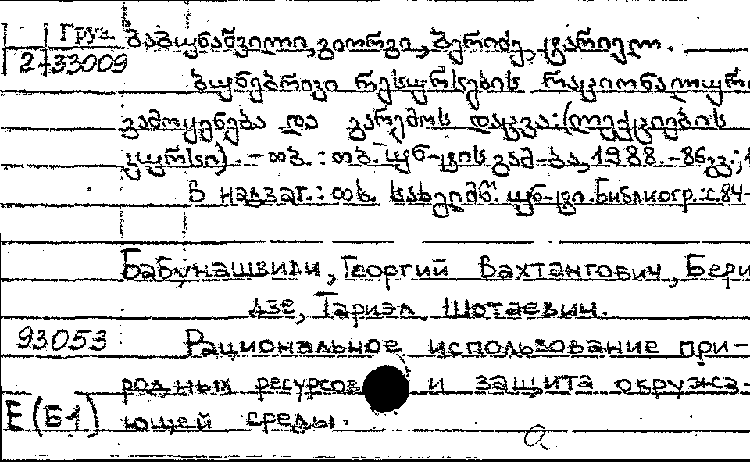 Груз. ბაბუნაშვილი, გიორგი, ბერიძე, ტარიელ.
2-33009
ბუნებრივი რესურსების რაციონალური
გამოყენება და გარემოს დაცვა: (ლექციების
კურსი). - თბ. : თბ. უნ-ტის გამ-ბა, 1988. - 86 გვ.; 1
В надзаг.: თბ. სახელმწ. უნ-ტი. Библиогр.: с. 84-
Бабунашвили, Георгий Вахтангович, Бери
дзе, Тариэл Шотаевич.
93053 Рациональное использование при-
родных ресурсов и защита окружа
Е(Б1) ющей среды.